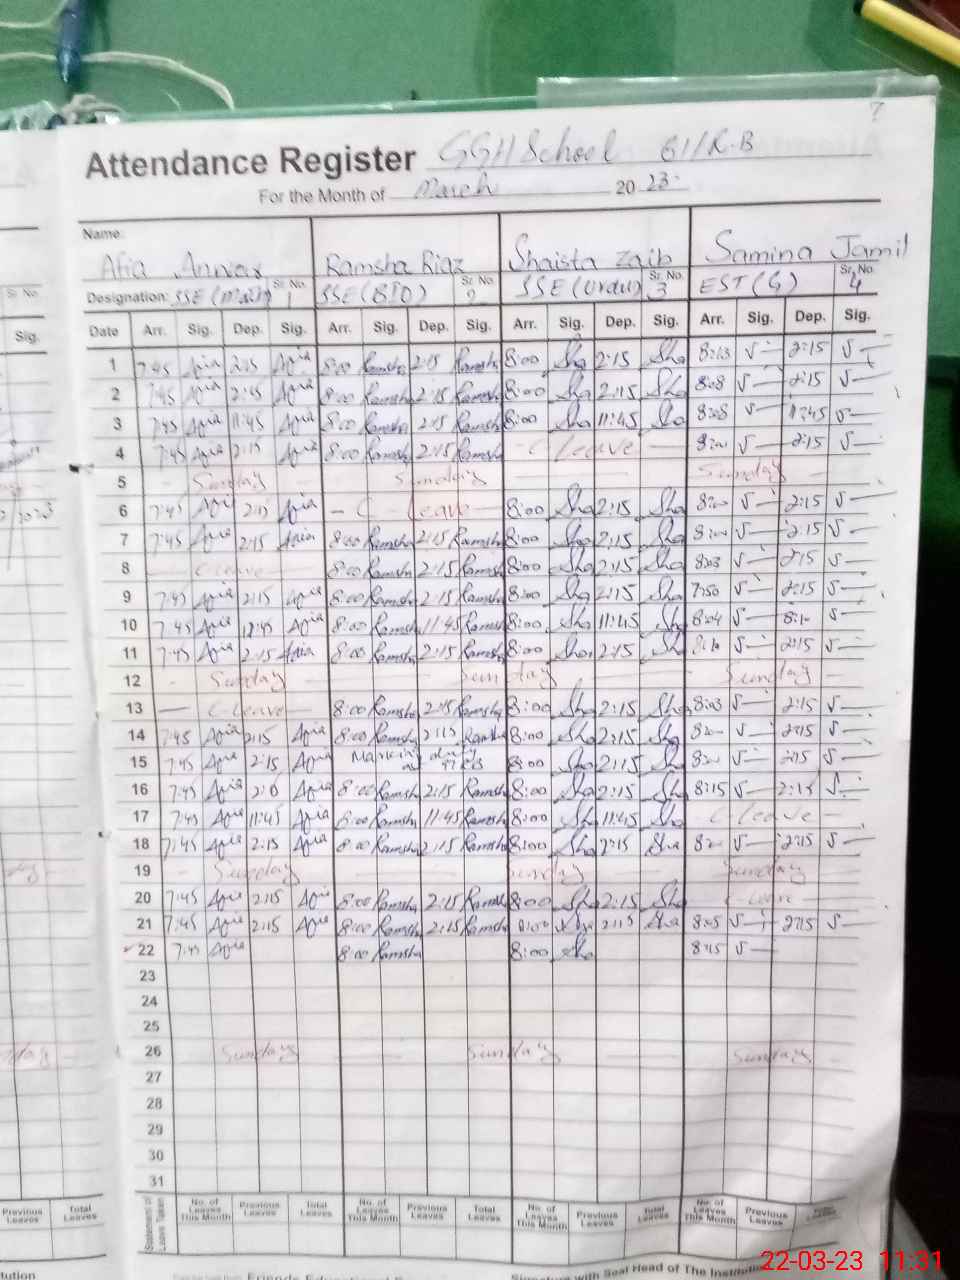 7
Attendance Register GGH School 61/R.B
For the Month of March 20 23
Name:
Afia Anwar Ramsha Riaz Shaista Zaib Samina Jamil
Designation: SSE (Math) Sr. No. 1 SSE (BIO) Sr. No. 2 SSE (Urdu) Sr. No. 3 EST (G) Sr. No. 4
Date Arr. Sig. Dep. Sig. Arr. Sig. Dep. Sig. Arr. Sig. Dep. Sig. Arr. Sig. Dep. Sig.
1 7:45 Afia 2:15 Afia 8:00 Ramsha 2:15 Ramsha 8:00 Sha 2:15 Sha 8:13 2:15
2 7:45 Afia 2:15 Afia 8:00 Ramsha 2:15 Ramsha 8:00 Sha 2:15 Sha 8:08 2:15
3 7:45 Afia 11:45 Afia 8:00 Ramsha 2:15 Ramsha 8:00 Sha 11:45 Sha 8:08 11:45
4 7:45 Afia 2:15 Afia 8:00 Ramsha 2:15 Ramsha - C Leave - 2:15
5 - Sunday Sunday Sunday
6 7:45 Afia 2:15 Afia - C Leave - 8:00 Sha 2:15 Sha 2:15
7 7:45 Afia 2:15 Afia 8:00 Ramsha 2:15 Ramsha 8:00 Sha 2:15 Sha 2:15
8 C Leave 8:00 Ramsha 2:15 Ramsha 8:00 Sha 2:15 Sha 8:03 2:15
9 7:45 Afia 2:15 Afia 8:00 Ramsha 2:15 Ramsha 8:00 Sha 2:15 Sha 7:50 2:15
10 7:45 Afia 12:45 Afia 8:00 Ramsha 11:45 Ramsha 8:00 Sha 11:45 Sha 8:04
11 7:45 Afia 2:15 Afia 8:00 Ramsha 2:15 Ramsha 8:00 Sha 2:15 Sha 8:10 2:15
12 - Sunday Sunday Sunday -
13 — C Leave — 8:00 Ramsha 2:15 Ramsha 8:00 Sha 2:15 Sha 8:03 2:15
14 7:45 Afia 2:15 Afia 8:00 Ramsha 2:15 Ramsha 8:00 Sha 2:15 Sha 2:15
15 7:45 Afia 2:15 Afia duty 8:00 Sha 2:15 Sha 2:15
16 7:45 Afia Afia 8:00 Ramsha 2:15 Ramsha 8:00 Sha 2:15 Sha 8:15 2:15
17 7:45 Afia 11:45 Afia 8:00 Ramsha 11:45 Ramsha 8:00 Sha 11:45 Sha C Leave -
18 7:45 Afia 2:15 Afia 8:00 Ramsha 2:15 Ramsha 8:00 Sha 2:15 Sha 2:15
19 - Sunday Sunday Sunday
20 7:45 Afia 2:15 Afia 8:00 Ramsha 2:15 Ramsha 8:00 Sha 2:15 Sha C Leave
21 7:45 Afia 2:15 Afia 8:00 Ramsha 2:15 Ramsha 8:00 Sha 2:15 Sha 8:05 2:15
22 7:45 Afia 8:00 Ramsha 8:00 Sha 8:15
23
24
25
26 Sunday Sunday Sunday
27
28
29
30
31
Statement of Leave Taken No. of Leaves This Month Previous Leaves Total Leaves No. of Leaves This Month Previous Leaves Total Leaves No. of Leaves This Month Previous Leaves Total Leaves No. of Leaves This Month Previous Leaves
Signature with Seal Head of The Institution
Sr. No.
Sig.
Previous Leaves Total Leaves
22-03-23 11:31